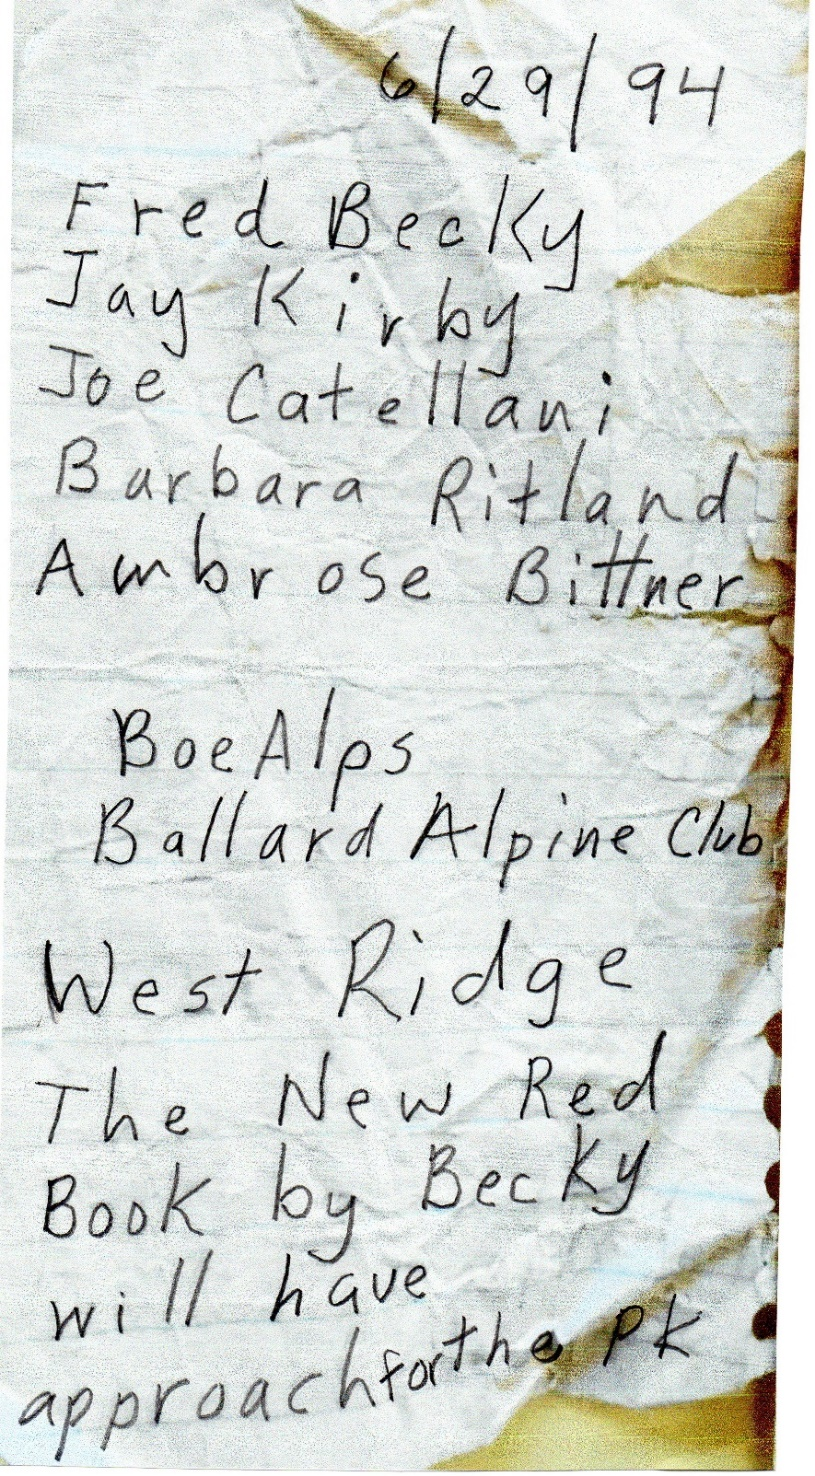 6/29/94
Fred Becky
Jay Kirby
Joe Catellani
Barbara Ritland
Ambrose Bittner
BoeAlps
Ballard Alpine Club
West Ridge
The New Red
Book by Becky
will have
approach for the PK